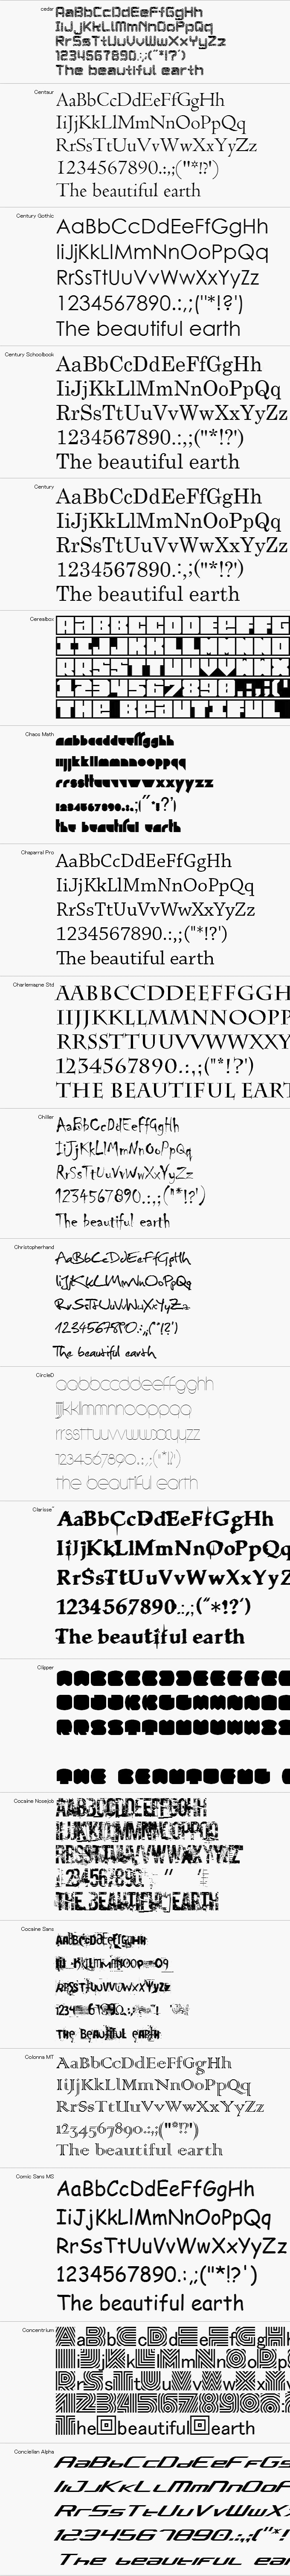 cedar
AaBbCcDdEeFfGgHh
IiJjKkLlMmNnOoPpQq
RrSsTtUuVvWwXxYyZz
1234567890.:,;("*!?')
The beautiful earth
Centaur
AaBbCcDdEeFfGgHh
IiJjKkLlMmNnOoPpQq
RrSsTtUuVvWwXxYyZz
1234567890.:,;("*!?')
The beautiful earth
Century Gothic
AaBbCcDdEeFfGgHh
IiJjKkLlMmNnOoPpQq
RrSsTtUuVvWwXxYyZz
1234567890.:,;("*!?')
The beautiful earth
Century Schoolbook
AaBbCcDdEeFfGgHh
IiJjKkLlMmNnOoPpQq
RrSsTtUuVvWwXxYyZz
1234567890.:,;("*!?')
The beautiful earth
Century
AaBbCcDdEeFfGgHh
IiJjKkLlMmNnOoPpQq
RrSsTtUuVvWwXxYyZz
1234567890.:,;("*!?')
The beautiful earth
Cerealbox
AaBBCCDDEEFFG
IIJJKKLLMMNNO
RRSSTTUUVVWWX
1234567890.:,;("
THE BEAUTIFUL
Chaos Math
aabbccddeeffgghh
iijjkkllmmnnooppqq
rrssttuuvvwwxxyyzz
1234567890.:,;("*!?')
the beautiful earth
Chaparral Pro
AaBbCcDdEeFfGgHh
IiJjKkLlMmNnOoPpQq
RrSsTtUuVvWwXxYyZz
1234567890.:,;("*!?')
The beautiful earth
Charlemagne Std
AABBCCDDEEFFGGH
IIJJKKLLMMNNOOPP
RRSSTTUUVVWWXXY
1234567890.:,;("*!?')
THE BEAUTIFUL EART
Chiller
AaBbCcDdEeFfGgHh
IiJjKkLlMmNnOoPpQq
RrSsTtUuVvWwXxYyZz
1234567890.:,;("*!?')
The beautiful earth
Christopherhand
AaBbCcDdEeFfGgHh
IiJjKkLlMmNnOoPpQq
RrSsTtUuVvWwXxYyZz
1234567890.:,;("*!?')
The beautiful earth
CircleD
aabbccddeeffgghh
iijjkkllmmnnooppqq
rrssttuuvvwwxxyyzz
1234567890.:,;("*!?')
the beautiful earth
Clarisse"
AaBbCcDdEeFfGgHh
IiJjKkLlMmNnOoPpQq
RrSsTtUuVvWwXxYyZ
1234567890.:,;("*!?')
The beautiful earth
Clipper
Cocaine Nosejob
AABBCCDDEEFFGGHH
IIJJKKLLMMNNOOPPQQ
RRSSTTUUVVWWXXYYZZ
1234567890.
THE BEAUTIFUL EARTH
Cocaine Sans
The Beautiful earth
Colonna MT
AaBbCcDdEeFfGgHh
IiJjKkLlMmNnOoPpQq
RrSsTtUuVvWwXxYyZz
1234567890.:,;("*!?')
The beautiful earth
Comic Sans MS
AaBbCcDdEeFfGgHh
IiJjKkLlMmNnOoPpQq
RrSsTtUuVvWwXxYyZz
1234567890.:,;("*!?')
The beautiful earth
Concentrium
AaBbCcDdEeFfGgH
IiJjKkLlMmNnOoP
RrSsTtUuVvWwXxY
1234567890.:,
The beautiful earth
Conclellan Alpha
AaBbCcDdEeFfGg
IiJjKkLlMmNnOoP
RrSsTtUuVvWwX
1234567890.:,;("*!
The beautiful ear